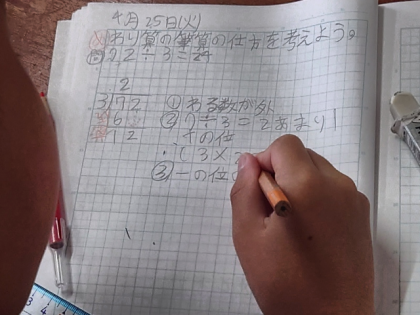 4月25日(火)
めわり算の筆算の仕方を考えよう。
問72÷3=24
2
3)72
6
12
①わる数が外
②7÷3=2あまり1
十の位
(3×2
③一の位